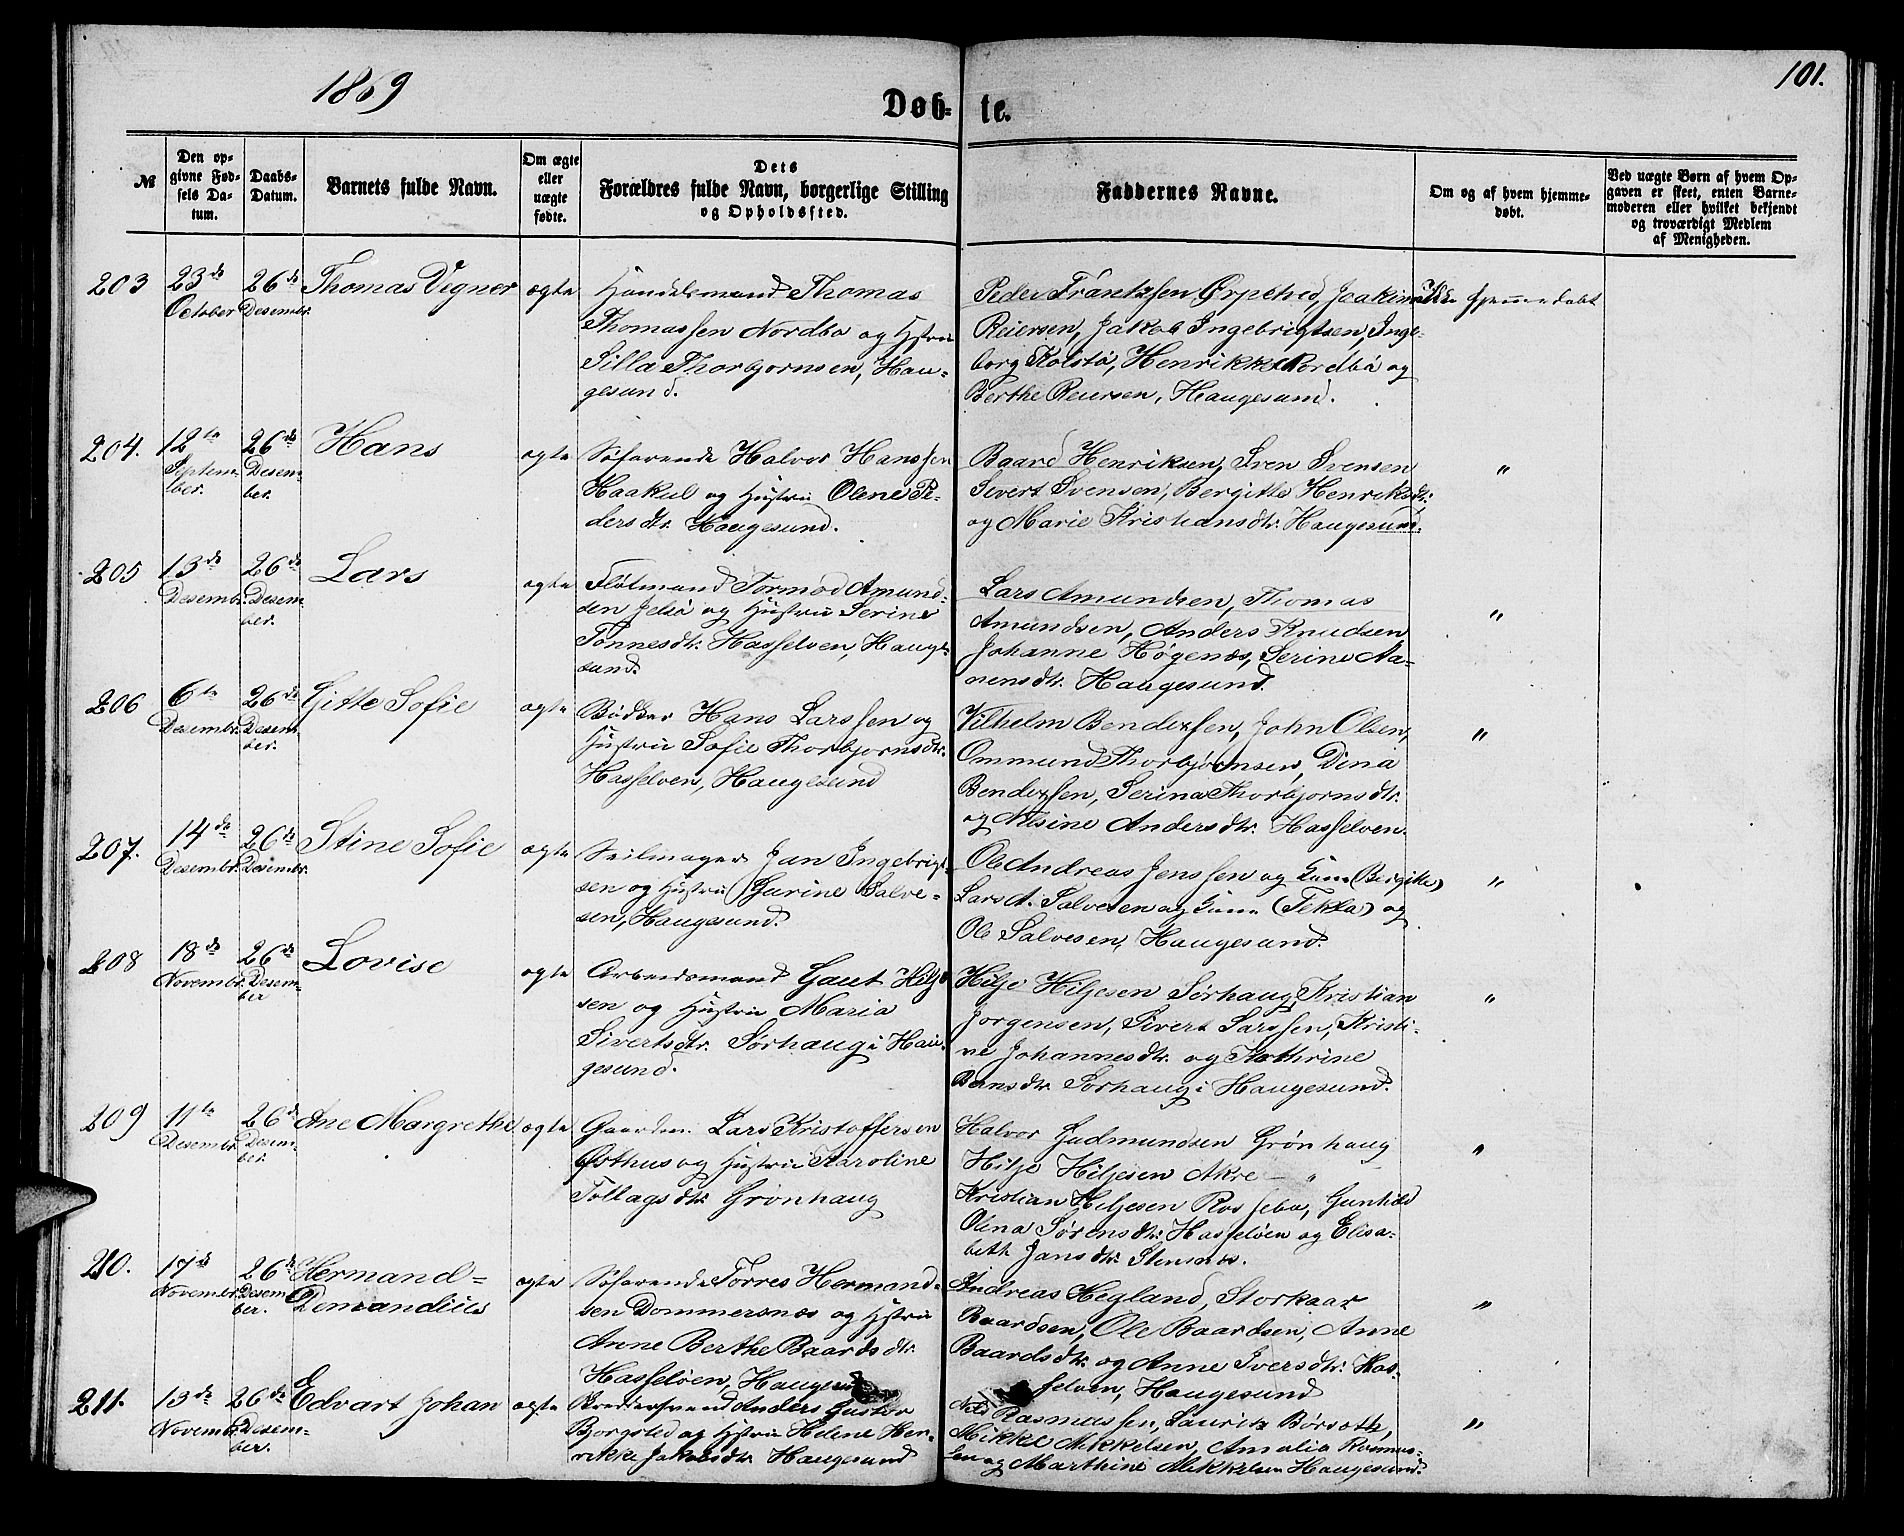 1869
101.
Døb-
te.
№
Den op-
givne Fød-
sels Da-
tum.
Daabs-
Datum.
Barnets fulde Navn.
Om ægte
eller
uægte
fødte.
Dets
Forældres fulde Navn, borgerlige Stilling
og Opholdssted.
Faddernes Navne.
Om og af hvem hjemme-
døbt.
Ved uægte Børn af hvem Op-
gaven er skeet, enten Barne-
moderen eller hvilket bekjendt
og troværdigt Medlem
af Menigheden.
203
23de
October
26de
Desembr.
Thomas Vegner
ægte
Handelsmand Thomas
Thomassen Nordbø og Hstru
Silla Thorbjornsen, Hau-
gesund.
Peder Frantzsen Ørpetved, Joakim
Reiersen, Jakob Ingebrigtsen, Inge-
borg Kolstø, Henrikke Nordbø og
Berthe Reiersen, Haugesund.
Ikke hjemmedøbt
204.
12te
Septem-
ber.
26de
Desem-
ber.
Hans
ægte
Søfarende Halvor Hanssen
Haakul og Hustru Olene Pe-
dersdtr. Haugesund.
Baard Henriksen, Sven Svensen
Sivert Svensen, Bergitte Henriksdtr.
og Marie Kristiansdtr. Haugesund.
"
205
13de
Desembr.
26de
Desem-
ber.
Lars
ægte
Flòtmand Tormod Amund-
sen Jelsø og Hustru Serine
Tønnesdtr. Hasseløen, Hauge-
sund.
Lars Amundsen, Thomas
Amundsen, Anders Knudsen
Johanne Høgenæs, Serine Aa-
nensdtr. Haugesund.
"
206
6te
Desembr.
26de
Desem-
ber.
Gitte Sofie
ægte
Bødker Hans Larssen og
Hustru Sofie Thorbjornsdtr.
Hasseløen, Haugesund
Vilhelm Bendixsen, John Olsen,
Ommund Thorbjørnsen, Dina
Bendixsen, Serina Thorbjornsdtr.
og Nilsine Andersdtr. Hasseløen.
"
207.
14de
Desembr.
26de
Desembr.
Stine Sofie
ægte
Seilmager Jan Ingebrigt-
sen og Hustru Gurine Salve-
sen, Haugesund.
Ole Andreas Jenssen og Kone (Bergitte)
Lars A. Salvesen og Kone (Tekla) og
Ole Salvesen, Haugesund.
"
208
18de
Novembr.
26de
Desem-
ber
Lovise
ægte
Arbeidsmand Gaut Hilje-
sen og Hustru Maria
Sivertsdtr. Sørhaug i Hau-
gesund.
Hilje Hiljesen Sørhaug, Kristian
Jorgensen, Sivert Larssen, Kristi-
ne Johannesdtr. og Kathrine
Bernsdtr. Sørhaug i Haugesund.
"
209
11te
Desembr.
26de
Desem-
ber.
Ane Margrethe
ægte
Gaardm. Lars Kristoffersen
Østhus og Hustru Karoline
Tollagsdtr. Grønhaug
Halvor Gudmundsen Grønhaug
Hilje Hiljesen Akre - "
Kristian Hiljesen Rossebø, Gunhild
Olina Sørensdtr. Hasseløen og Elisa-
beth Jansdtr. Stensnæs.
"
210.
17de
Novembr.
26de
Desem-
ber.
Hermand-
Demandius
ægte
Søfarende Torres Hermand-
sen Dommersnæs og Hstru
Anne Berthe Baardsdtr.
Hasseløen, Haugesund
Andreas Hegland, Storkaar
Baardsen, Ole Baardsen, Anne
Baardsdtr. og Anne Iversdtr. Has-
seløen, Haugesund
"
211.
13de
Novembr.
26de
Desem-
ber.
Edvart Johan
ægte
Anders Gustav
Borgsted og Hstru Helene Hen-
rikke Jakobsdtr. Haugesund
Nils Rasmussen, Lauritz Børsoth,
Mikkel Mikkelsen, Amalia Rasmus-
sen og Marthine Mikkelsen Haugesund.
"